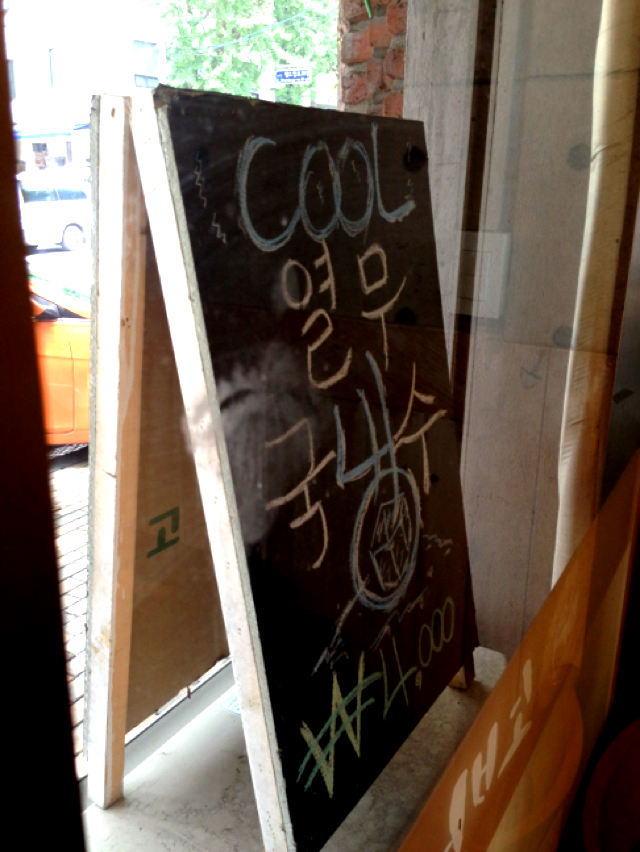 COOL
열무
국냉수
₩4,000
고